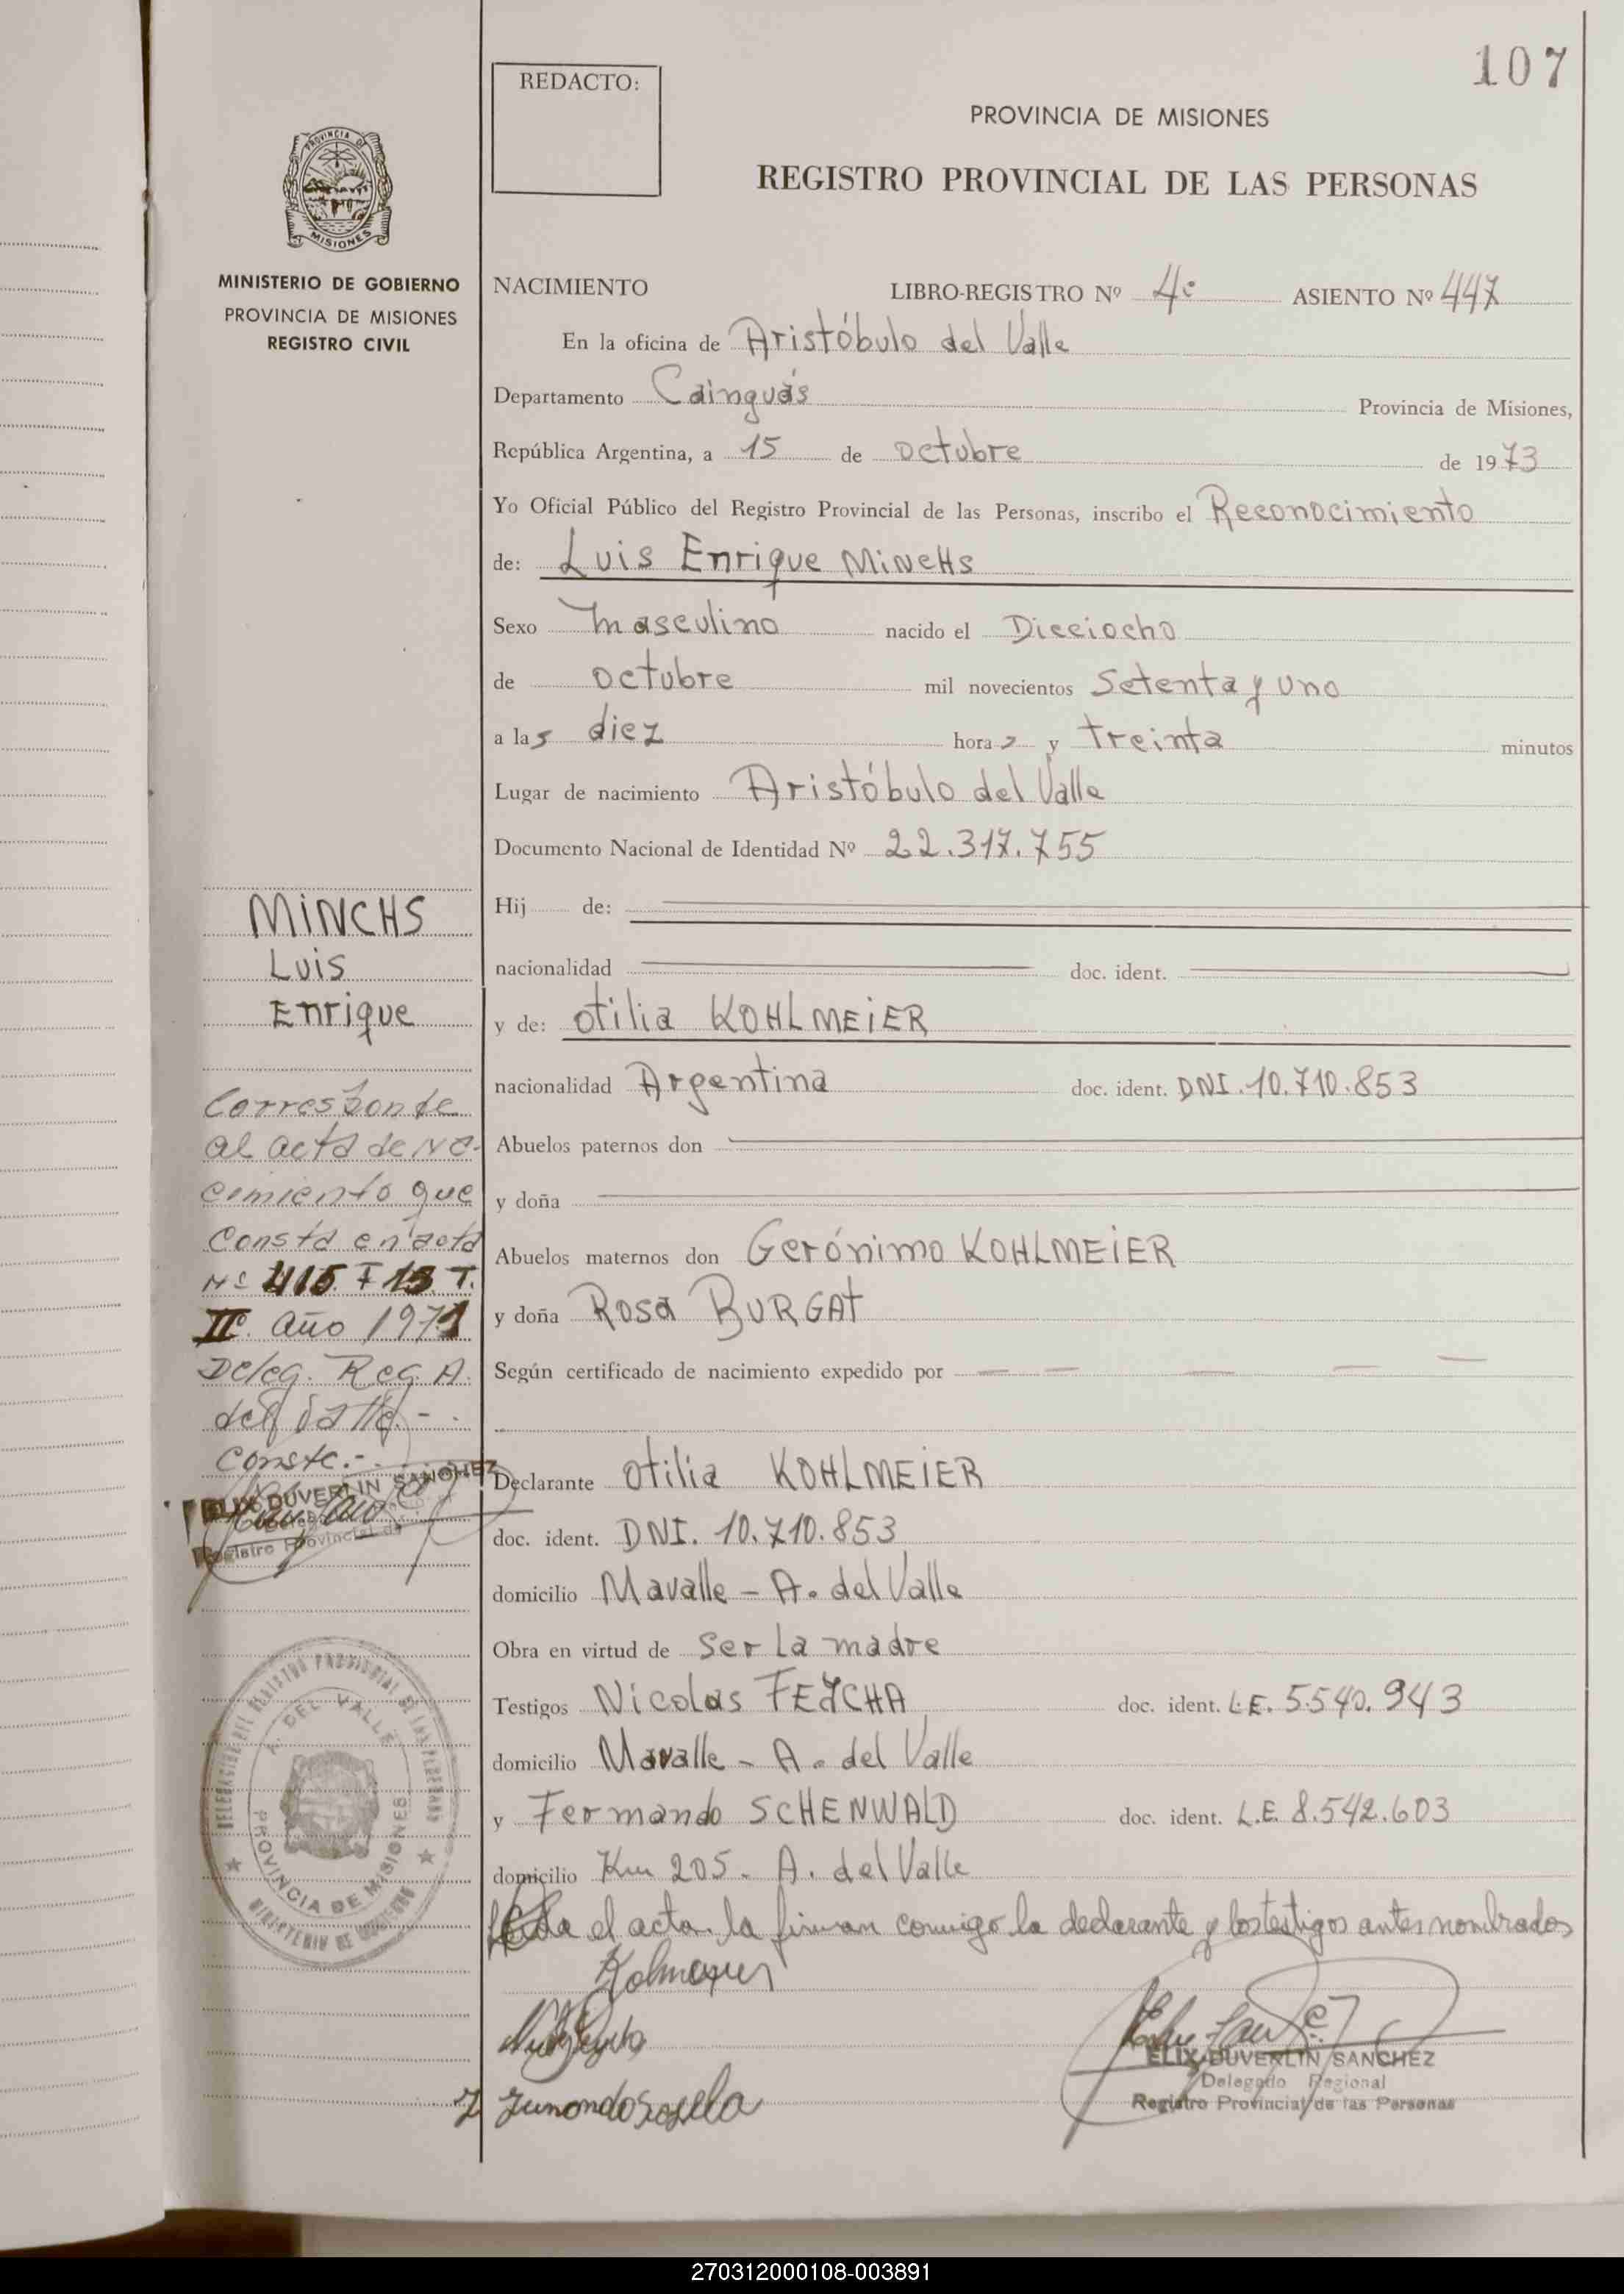 107
REDACTO:
PROVINCIA DE MISIONES
REGISTRO PROVINCIAL DE LAS PERSONAS
PROVINCIA DE
MISIONES
MINISTERIO DE GOBIERNO
PROVINCIA DE MISIONES
REGISTRO CIVIL
NACIMIENTO LIBRO-REGISTRO Nº 4º ASIENTO Nº 447
En la oficina de Aristóbulo del Valle
Departamento Cainguás Provincia de Misiones,
República Argentina, a 15 de octubre de 1973
Yo Oficial Público del Registro Provincial de las Personas, inscribo el Reconocimiento
de: Luis Enrique MiNcHs
Sexo masculino nacido el Dieciocho
de octubre mil novecientos Setenta y uno
a las diez horas y treinta minutos
Lugar de nacimiento Aristóbulo del Valle
Documento Nacional de Identidad Nº 22.317.755
Hij de:
nacionalidad doc. ident.
y de: otilia KOHLMEiER
nacionalidad Argentina doc. ident. DNI. 10.710.853
Abuelos paternos don
y doña
Abuelos maternos don Gerónimo KOHLMEiER
y doña Rosa BURGAt
Según certificado de nacimiento expedido por
Declarante otilia KOHLMEiER
doc. ident. DNI. 10.710.853
domicilio Mavalle - A. del Valle
Obra en virtud de ser la madre
Testigos Nicolas FEYCHA doc. ident. L.E. 5.540.943
domicilio Mavalle - A. del Valle
y Fernando SCHENWALD doc. ident. L.E. 8.542.603
domicilio Km 205 - A. del Valle
Leida el acta la firman conmigo la declarante y los testigos antes nombrados
Kolmeyer
FELIX DUVERLIN SANCHEZ
Delegado Regional
Registro Provincial de las Personas
MiNCHS
Luis
Enrique
Corresponde
al acta de Na-
cimiento que
Consta en acta
Nº 415. F 13 T.
IIº. año 1971
Deleg. Reg. A.
del Valle.-
Conste.-
FELIX DUVERLIN SANCHEZ
Registro Provincial de
DELEGACION DEL REGISTRO PROVINCIAL DE LAS PERSONAS
A. DEL VALLE
PROVINCIA DE MISIONES
MINISTERIO DE GOBIERNO
270312000108-003891